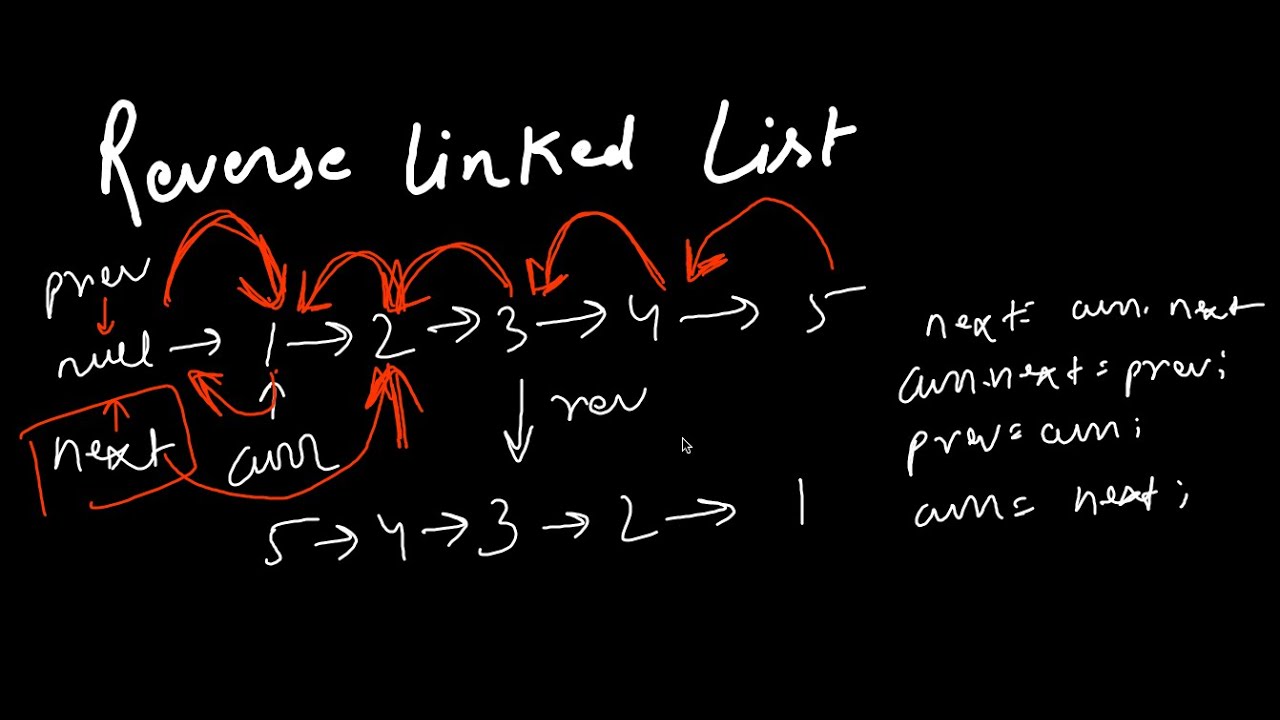 Reverse Linked List
prev
null → 1 → 2 → 3 → 4 → 5
next curr
rev
5 → 4 → 3 → 2 → 1
next = curr.next
curr.next = prev;
prev = curr;
curr = next;